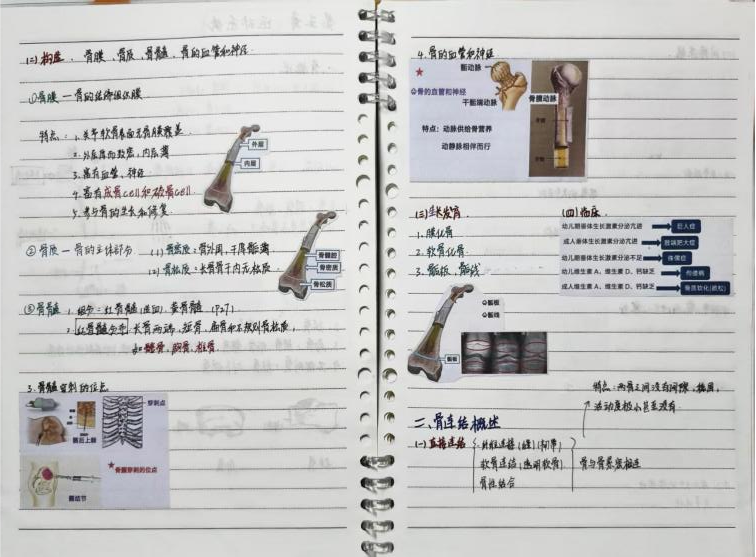 (二) 构造: 骨膜、骨质、骨髓、骨的血管和神经
①骨膜—骨的结缔组织膜
特点: 1. 关节软骨表面无骨膜覆盖
2. 外层厚而致密, 内层薄
3. 富有血管、神经
4. 富有成骨cell和破骨cell
5. 参与骨的生长和修复.
外层
内层
②骨质—骨的主体部分 (1) 骨密质: 骨外周, 干厚骺薄
(2) 骨松质: 长骨骨干内无松质.
骨髓腔
骨密质
骨松质
③骨髓 1. 组分: 红骨髓(造血), 黄骨髓 (P27)
2. 红骨髓分布: 长骨两端, 短骨, 扁骨和不规则骨松质,
如髂骨, 胸骨, 椎骨.
3. 骨髓穿刺的位点
穿刺点
髂后上棘
★骨髓穿刺的位点
髋动节
4. 骨的血管和神经
骺动脉
骨的血管和神经
干骺端动脉
骨膜动脉
特点: 动脉供给骨营养
动静脉相伴而行
(三) 生长发育.
1. 膜化骨
2. 软骨化骨.
3. 骺板、骺线
骺板
骺线
骺板
(四) 临床.
幼儿期垂体生长激素分泌亢进 巨人症
成人垂体生长激素分泌亢进 肢端肥大症
幼儿期垂体生长激素分泌不足 侏儒症
幼儿维生素 A、维生素 D、钙缺乏 佝偻病
成人维生素 A、维生素 D、钙缺乏 骨质软化(疏松)
特点: 两骨之间没有间隙,
活动度极小甚至没有.
二、骨连结概述
(一) 直接连结 纤维连接(缝)(韧带)
软骨连结(透明软骨) 骨与骨紧密相连
骨性结合